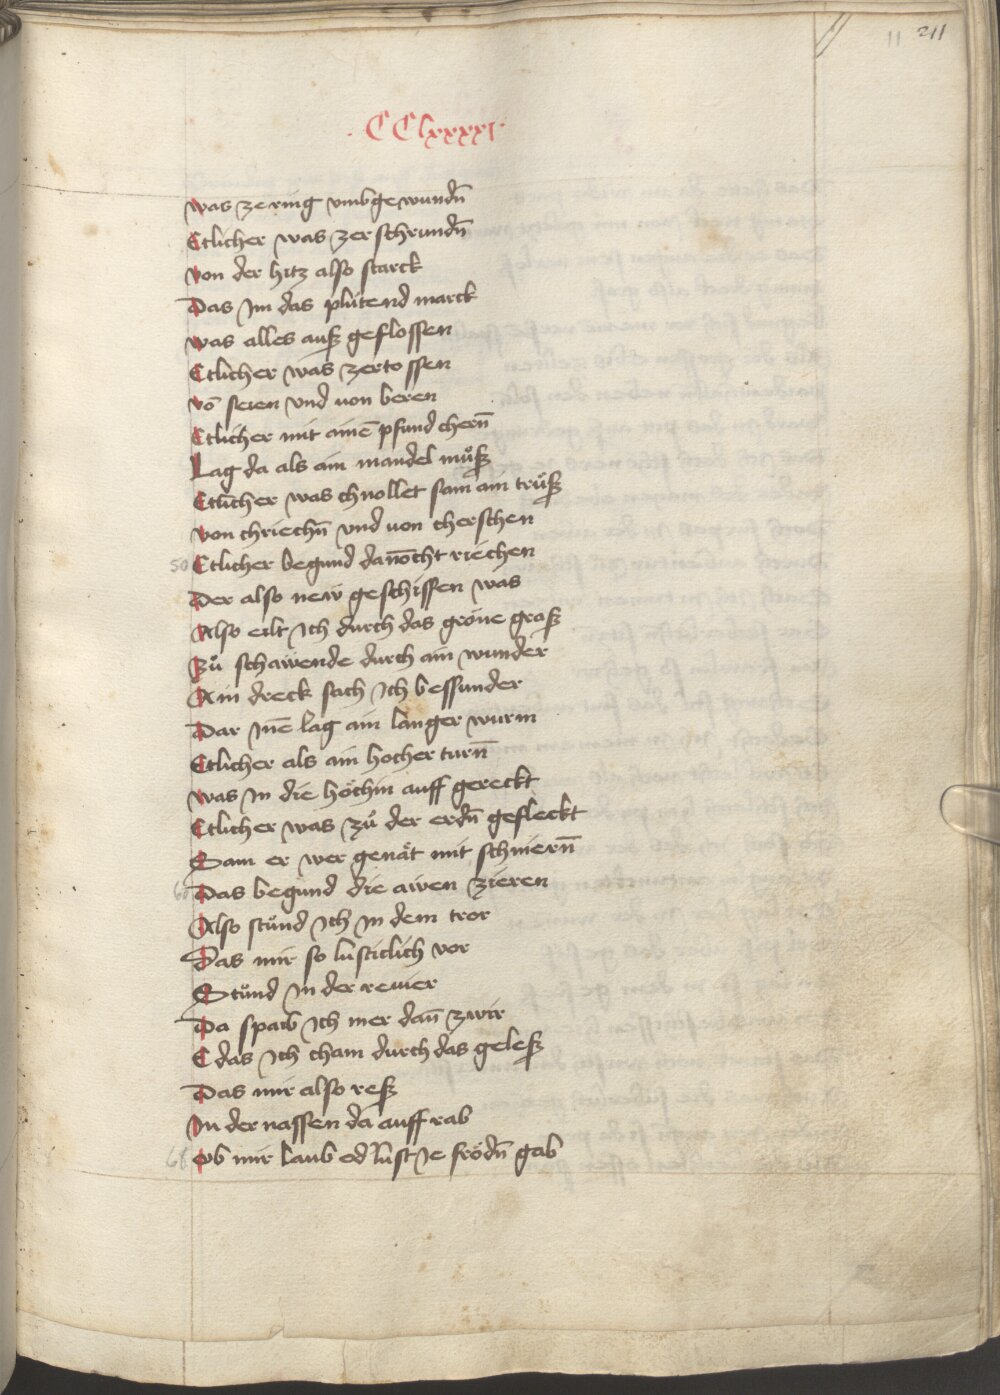 11 211
· CClxxxxi ·
was ze ring vmbgewundn̄
Etlicher was zerschrundn̄
von der hitz also starck
Das Im das plütend marck
was alles auß geflossen
Etlicher was zertossen
vō seien vnd von beren
Etlicher mit ainē pfund chern̄
Lag da als ain mandel muͦß
Etlicher was chnollet sam ain truͦß
von chriechn̄ vnd von cherschen
50 Etlicher begund dan̄ocht riechen
Der also new geschissen was
Also eilt Ich durch das gröne graß
Zuͦ schawende durch ain wunder
Ain dreck sach Ich bessunder
Dar Inē lag ain langer wurm
Etlicher als ain hocher turn̄
was In die höchin auff gereckt
Etlicher was zuͦ der erdn̄ gefleckt
Sam er wer genät mit schniern̄
60 Das begund die awen zieren
Also stuͦnd Ich In dem tror
Das mir so lusticlich vor
Stuͦnd In der reuier
Da spaib Ich mer dan̄ zwir
E das Ich cham durch das geleß
Das mir also reß
In der nassen da auff rab
68 Ob mir laub od lust Ie frödn̄ gab